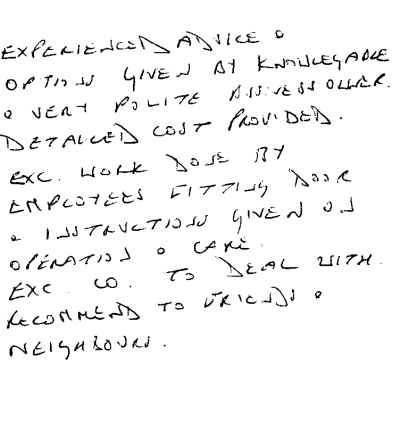 EXPERIENCED ADVICE &
OPTIONS GIVEN BY KNOWLEGABLE
& VERY POLITE BUSINESS OWNER.
DETAILED COST PROVIDED.
EXC. WORK DONE BY
EMPLOYEES FITTING DOOR
& INSTRUCTIONS GIVEN ON
OPERATION & CARE.
EXC. CO. TO DEAL WITH.
RECOMMEND TO FRIENDS &
NEIGHBOURS.